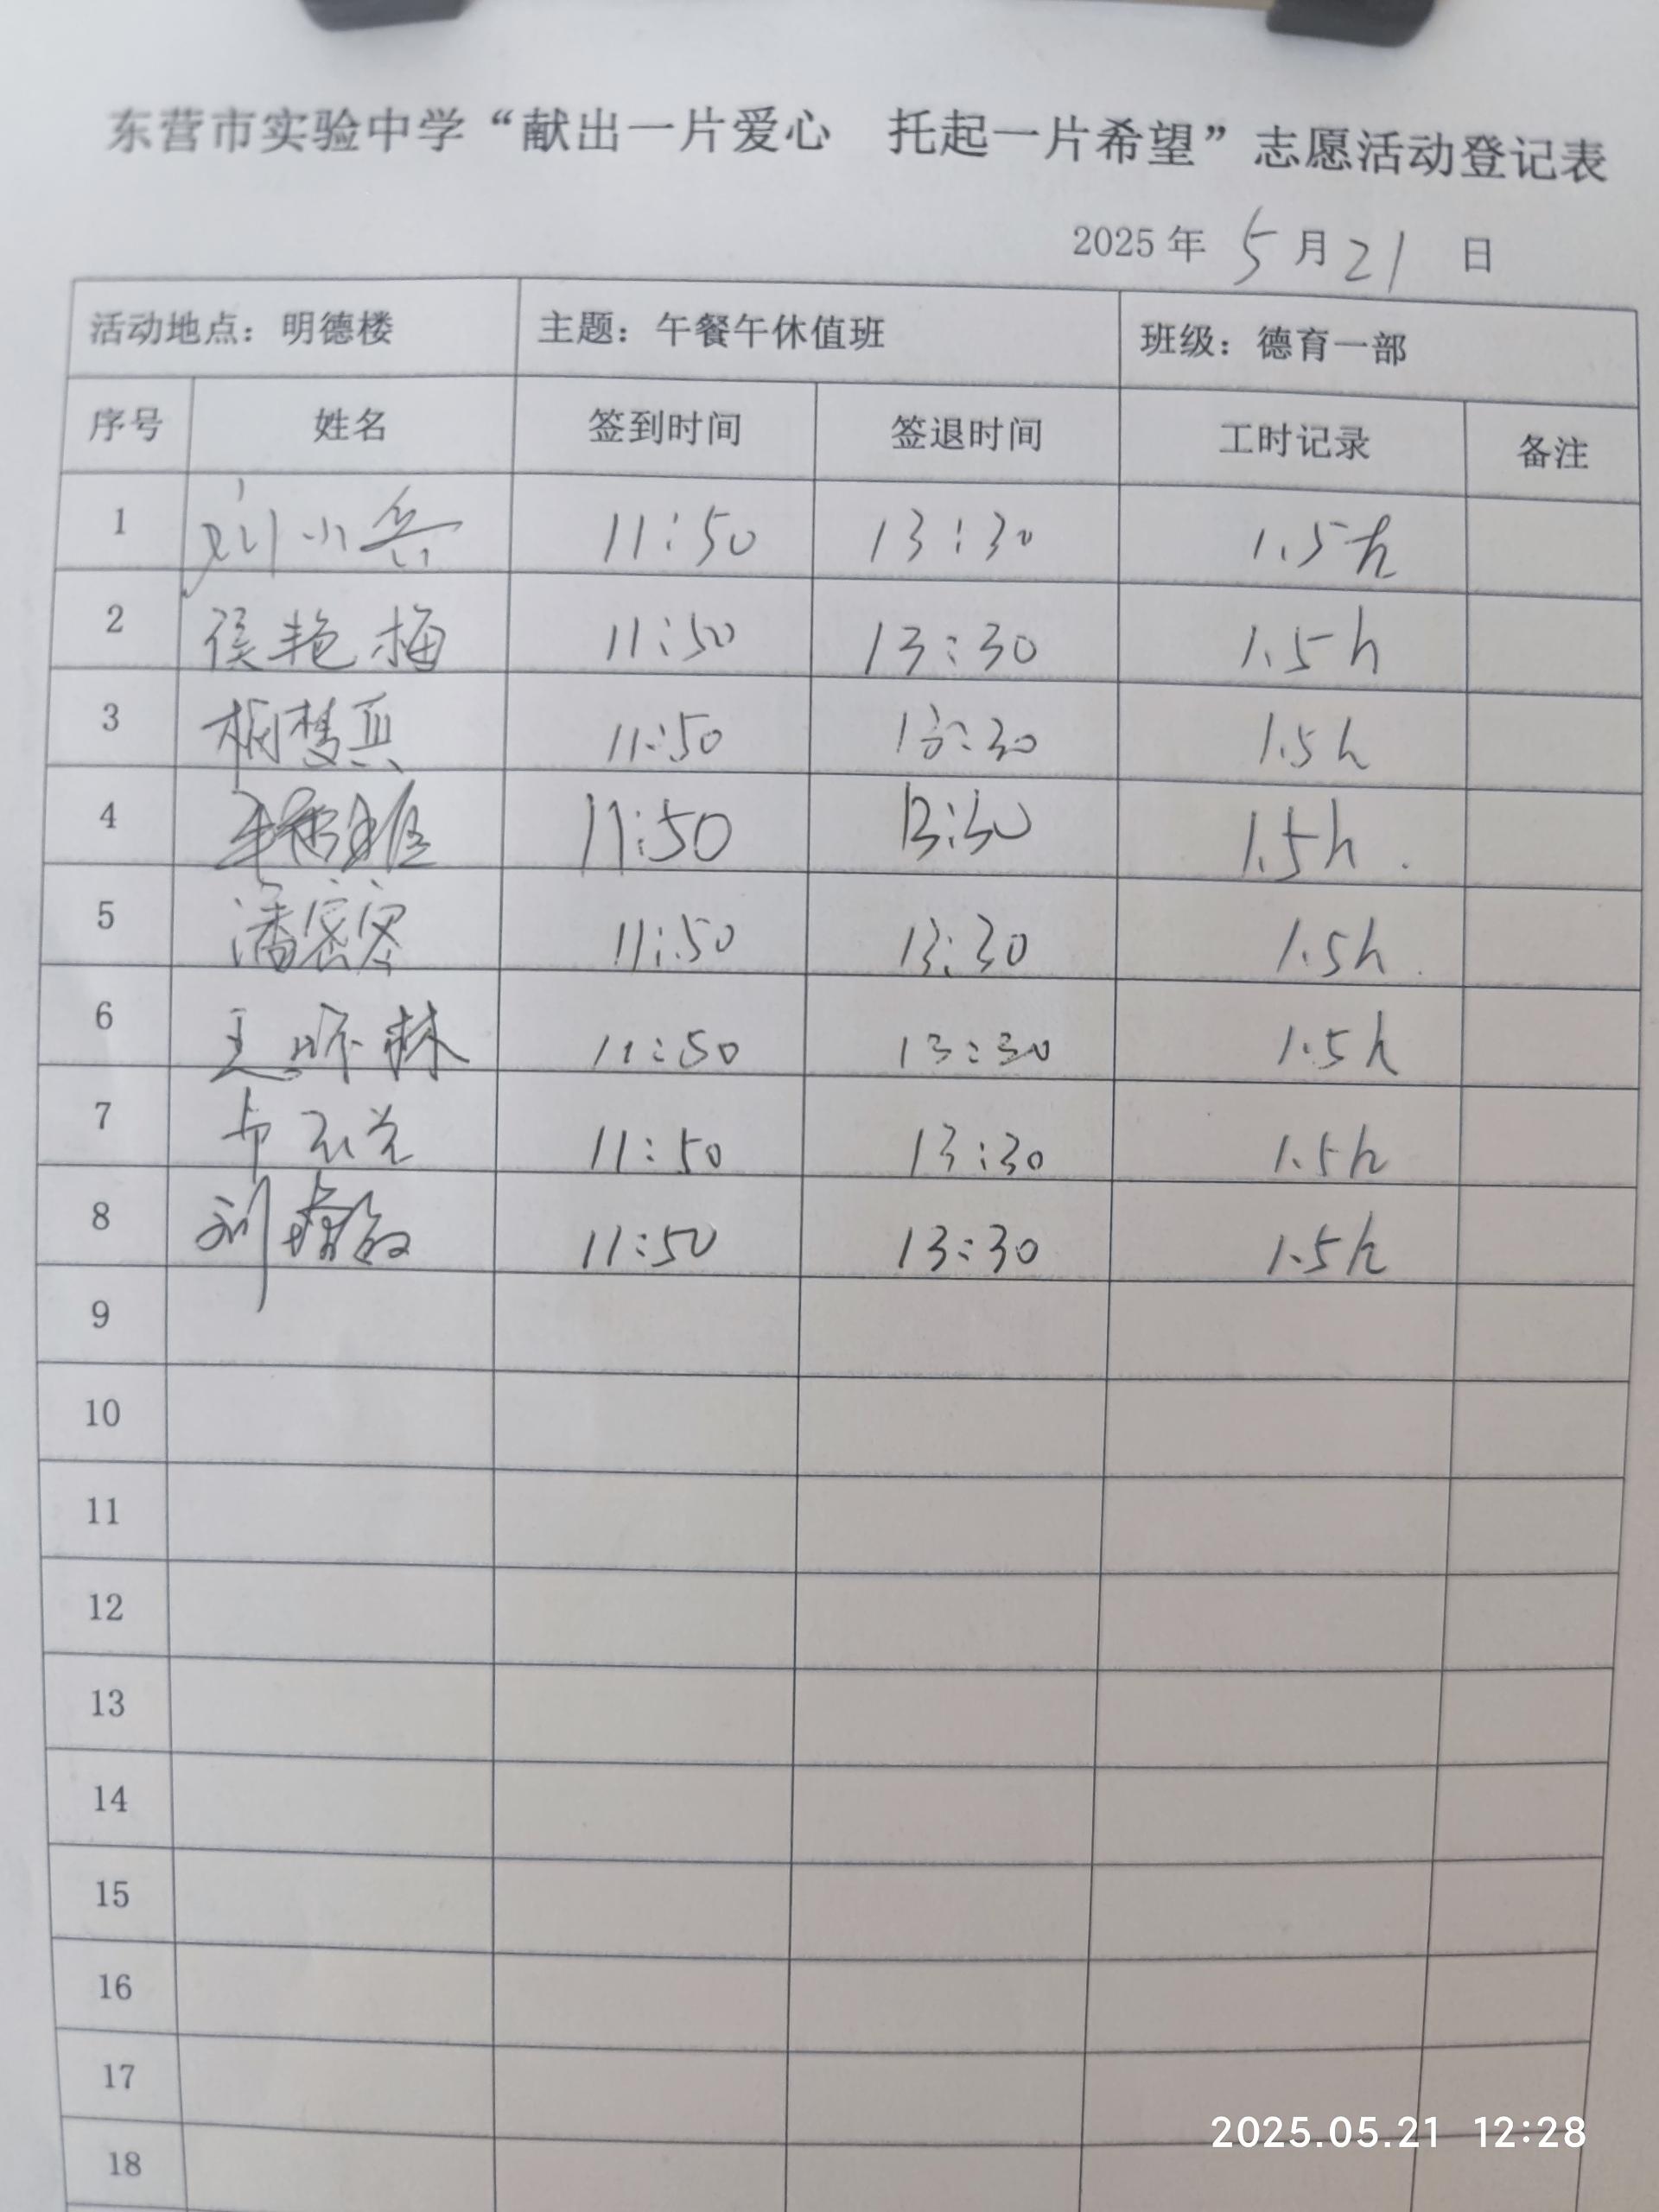 东营市实验中学“献出一片爱心 托起一片希望”志愿活动登记表
2025年 5月21 日
活动地点：明德楼 主题：午餐午休值班 班级：德育一部
序号 姓名 签到时间 签退时间 工时记录 备注
1 刘小兵 11:50 13:30 1.5h
2 侯艳梅 11:50 13:30 1.5h
3 11:50 13:30 1.5h
4 11:50 13:30 1.5h.
5 潘密密 11:50 13:30 1.5h.
6 王 林 11:50 13:30 1.5h
7 11:50 13:30 1.5h
8 刘 11:50 13:30 1.5h
9
10
11
12
13
14
15
16
17
18
2025.05.21 12:28